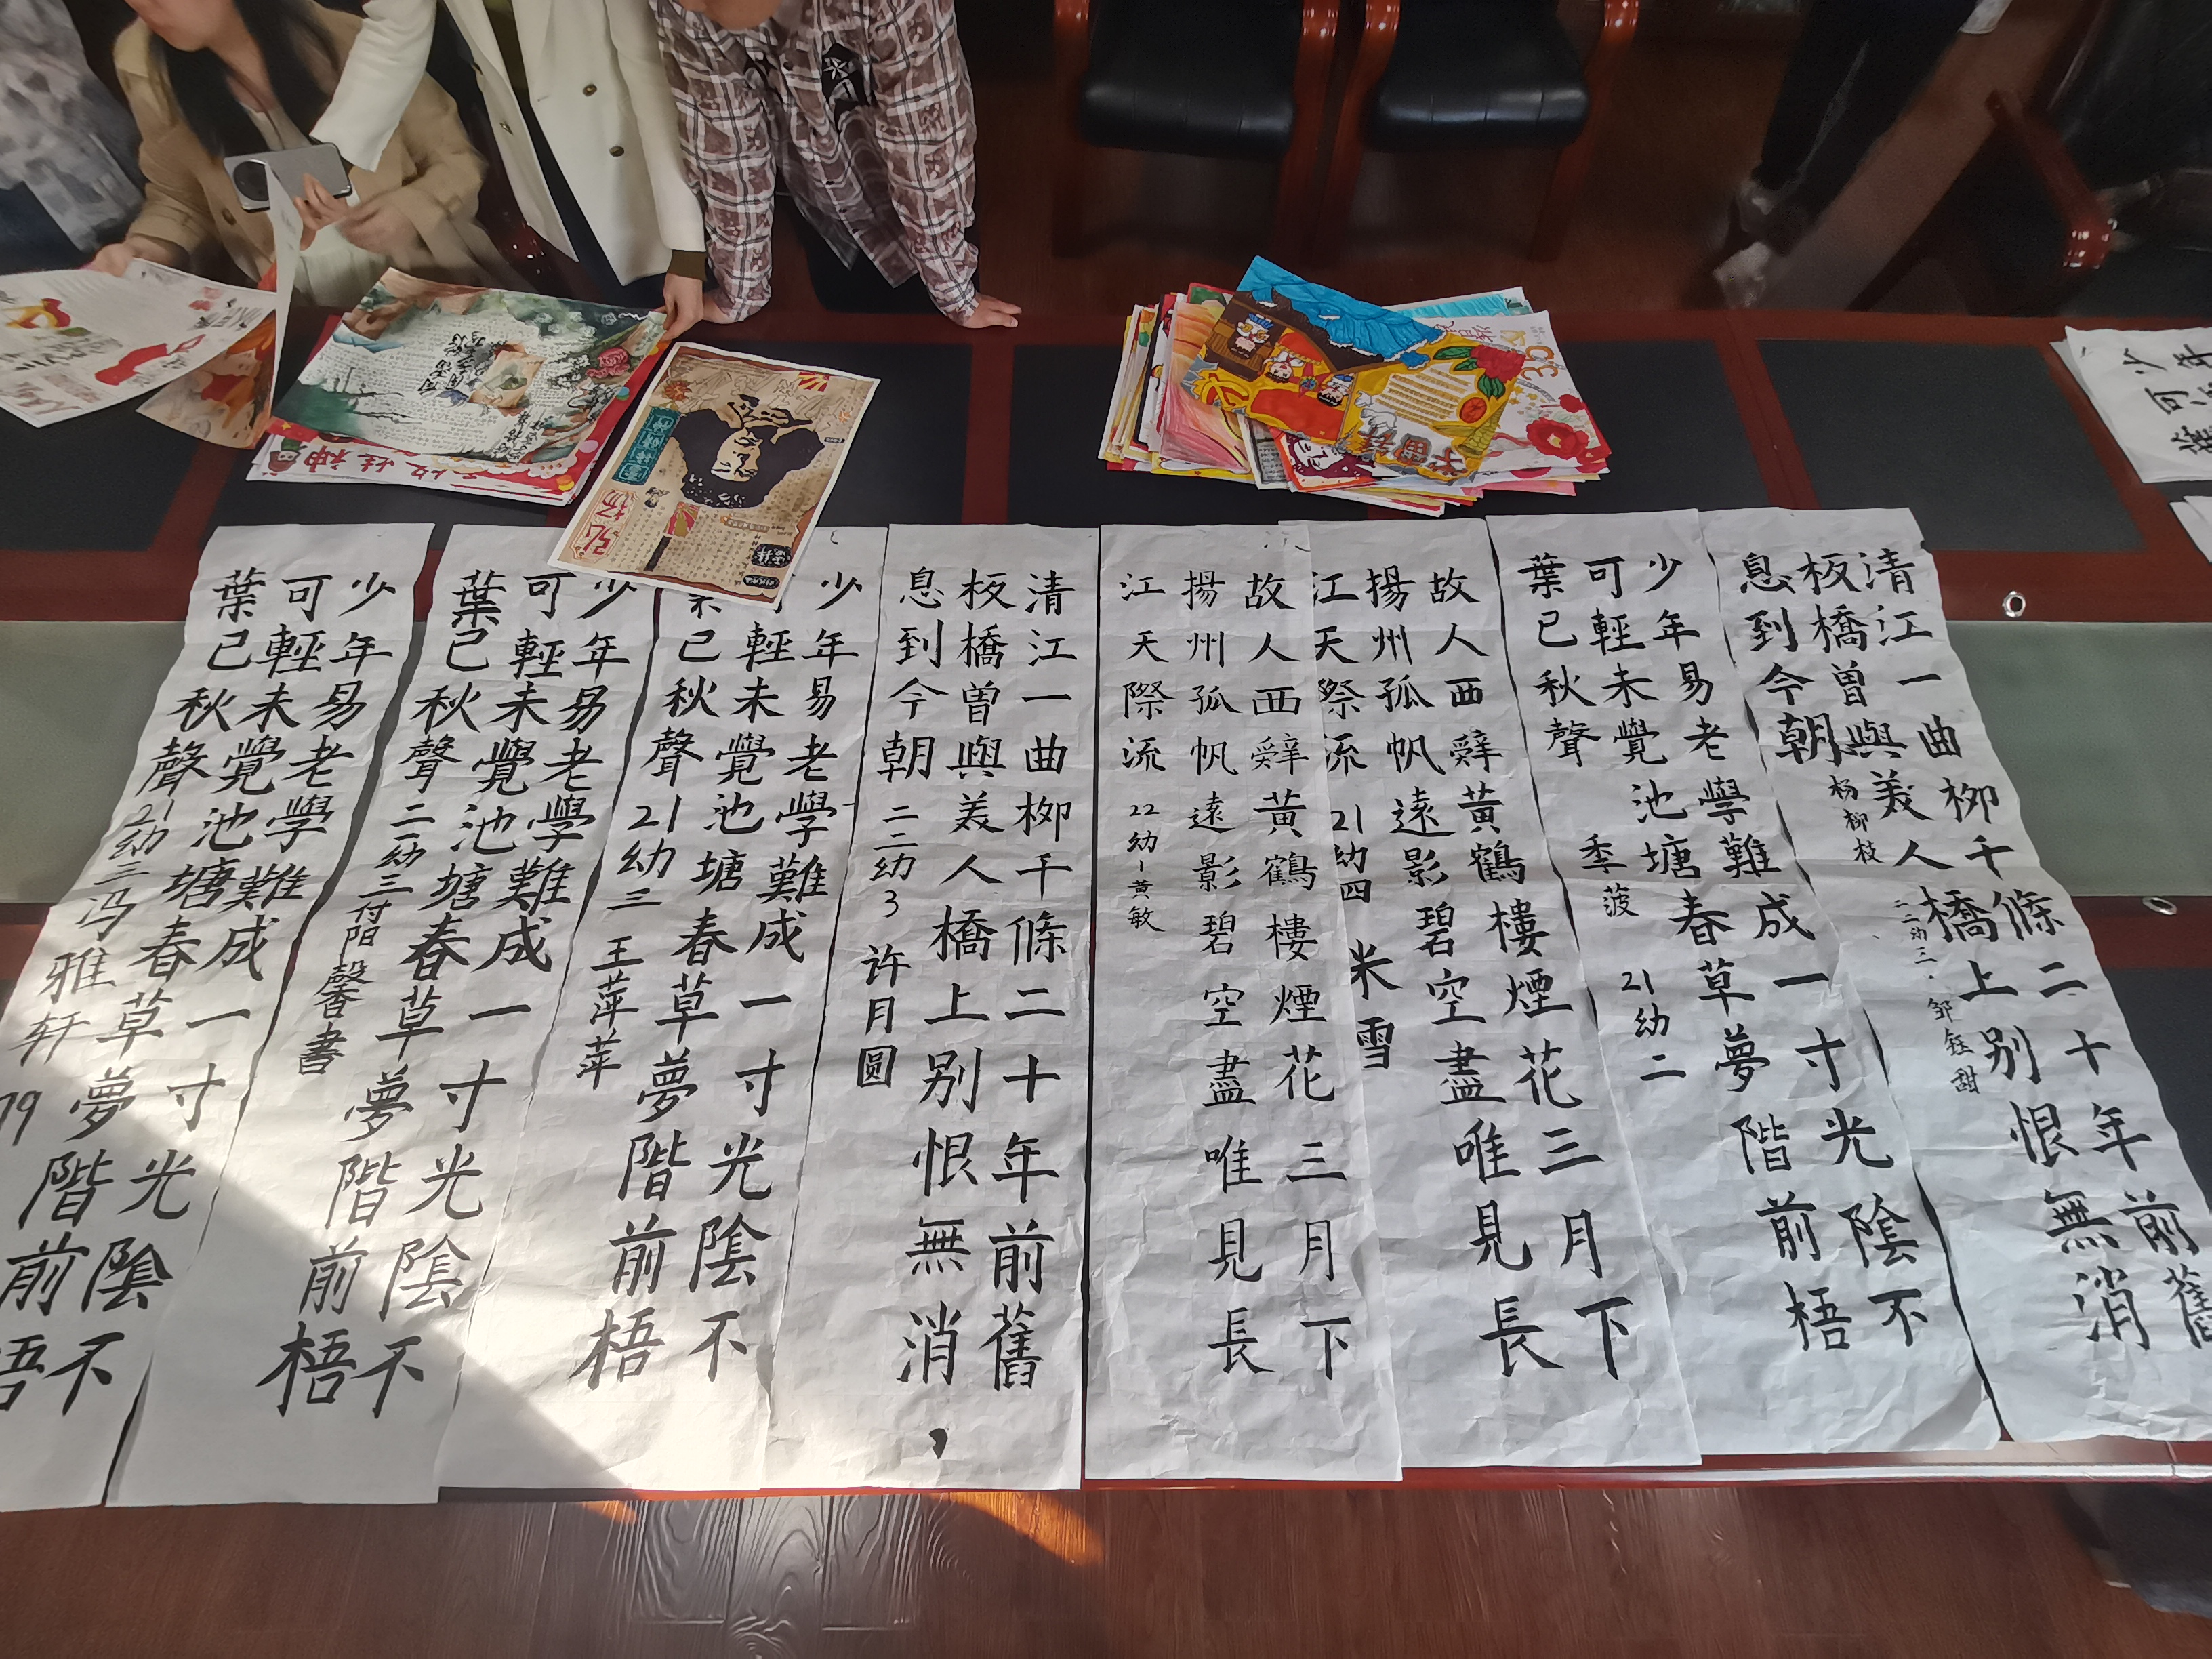 清江一曲柳千條二十年前舊
板橋曾與美人橋上別恨無消
息到今朝
杨柳枝
二二幼三·邹钰甜
少年易老學難成一寸光陰不
可輕未覺池塘春草夢階前梧
葉已秋聲
季菠
21幼二
故人西辭黃鶴樓煙花三月下
揚州孤帆遠影碧空盡唯見長
江天際流 21幼四 米雪
故人西辭黃鶴樓煙花三月下
揚州孤帆遠影碧空盡唯見長
江天際流 22幼一黄敏
清江一曲柳千條二十年前舊
板橋曾與美人橋上別恨無消
息到今朝 二二幼3 许月圆
少年易老學難成一寸光陰不
輕未覺池塘春草夢階前梧
已秋聲 21幼三 王萍萍
少年易老學難成一寸光陰不
可輕未覺池塘春草夢階前梧
葉已秋聲 二一幼三付阳馨書
少年易老學難成一寸光陰不
可輕未覺池塘春草夢階前梧
葉已秋聲 21幼三冯雅轩 79
弘扬
少年
可